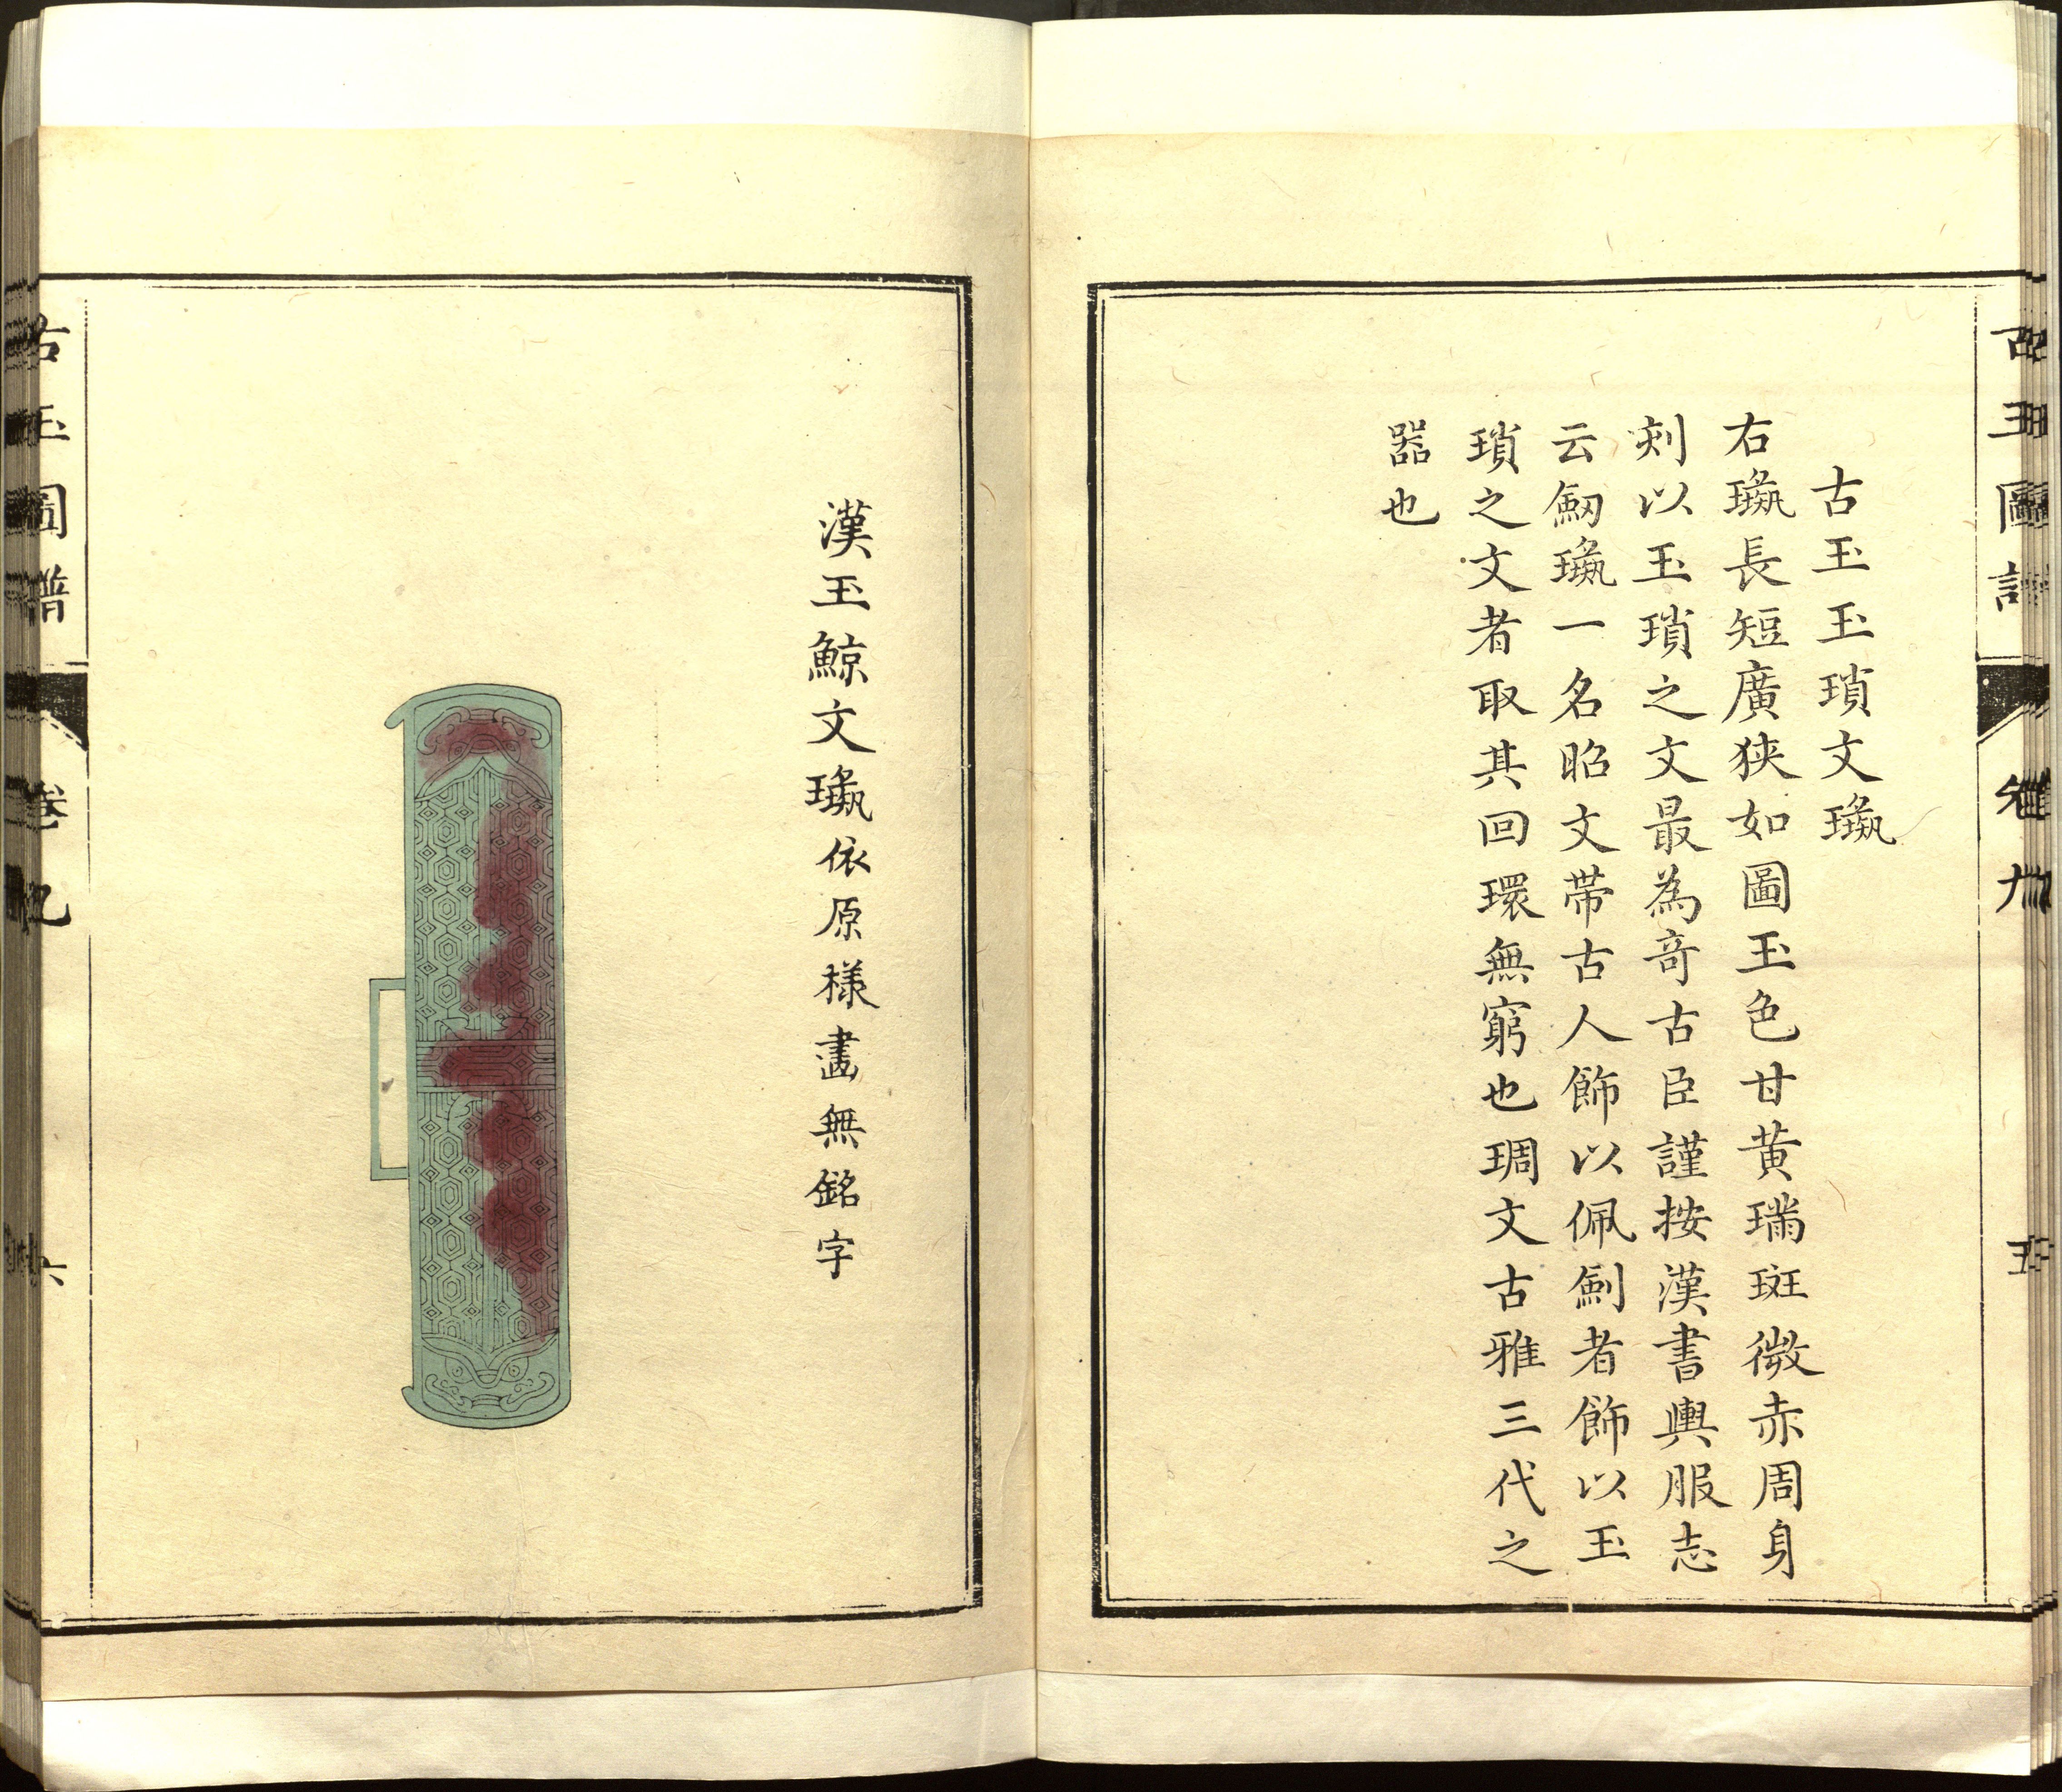 古玉圖譜 卷九 五
古玉玉瑣文璏
右璏長短廣狭如圖玉色甘黄瑞斑微赤周身
刻以玉瑣之文最為奇古臣謹按漢書輿服志
云劒璏一名昭文帶古人飾以佩劍者飾以玉
瑣之文者取其回環無窮也琱文古雅三代之
器也
漢玉鯨文璏依原樣畫無銘字
古玉圖譜 卷九 六